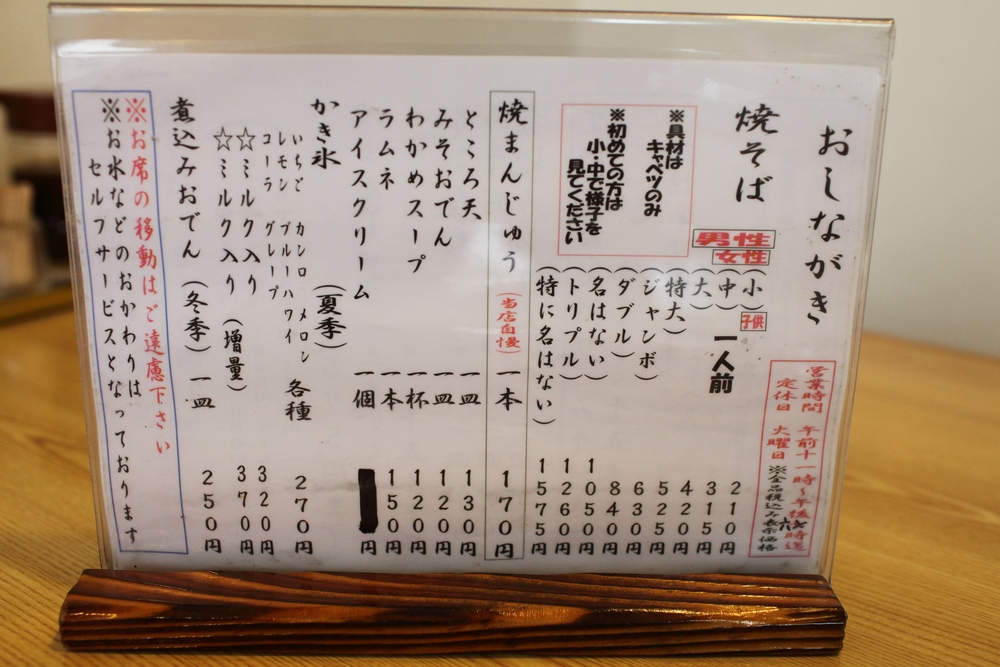 おしながき
営業時間 午前十一時～午後六時迄
定休日 火曜日 ※全品税込み表示価格
焼そば
男性
女性
子供
一人前
(小) 210円
(中) 315円
(大) 420円
(特大) 525円
(ジャンボ) 630円
(ダブル) 840円
(名はない) 1050円
(トリプル) 1260円
(特に名はない) 1575円
※具材は
キャベツのみ
※初めての方は
小・中で様子を
見てください
焼まんじゅう (当店自慢) 一本 170円
ところ天 一皿 130円
みそおでん 一皿 120円
わかめスープ 一杯 120円
ラムネ 一本 150円
アイスクリーム 一個 円
かき氷 (夏季)
いちご カンロ メロン
レモン ブルーハワイ
コーラ グレープ
各種 270円
☆ミルク入り 320円
☆ミルク入り (増量) 370円
煮込みおでん (冬季) 一皿 250円
※お席の移動はご遠慮下さい
※お水などのおかわりは
セルフサービスとなっております